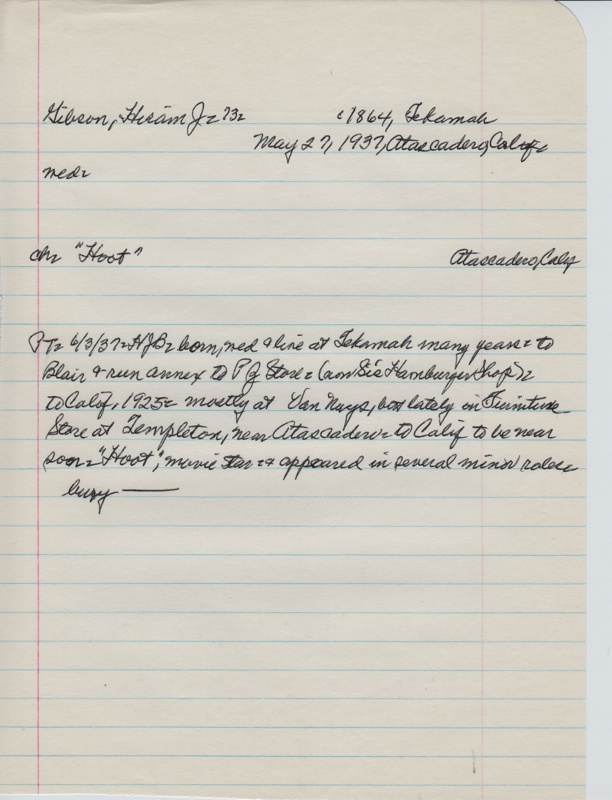 Gibson, Hiram J= 73= c1864, Tekamah
May 27, 1937, Atascadero, Calif=
med=
ch= "Hoot" Atascadero, Calif
PT= 6/3/37= HJB= born, med & live at Tekamah many years= to
Blair & run annex to P J Store= (now Sie Hamburger Shop)=
to Calif, 1925= mostly at Van Nuys, but lately in Furniture
Store at Templeton, near Atascadero= to Calif to be near
son= "Hoot", movie star= & appeared in several minor roles=
bury —